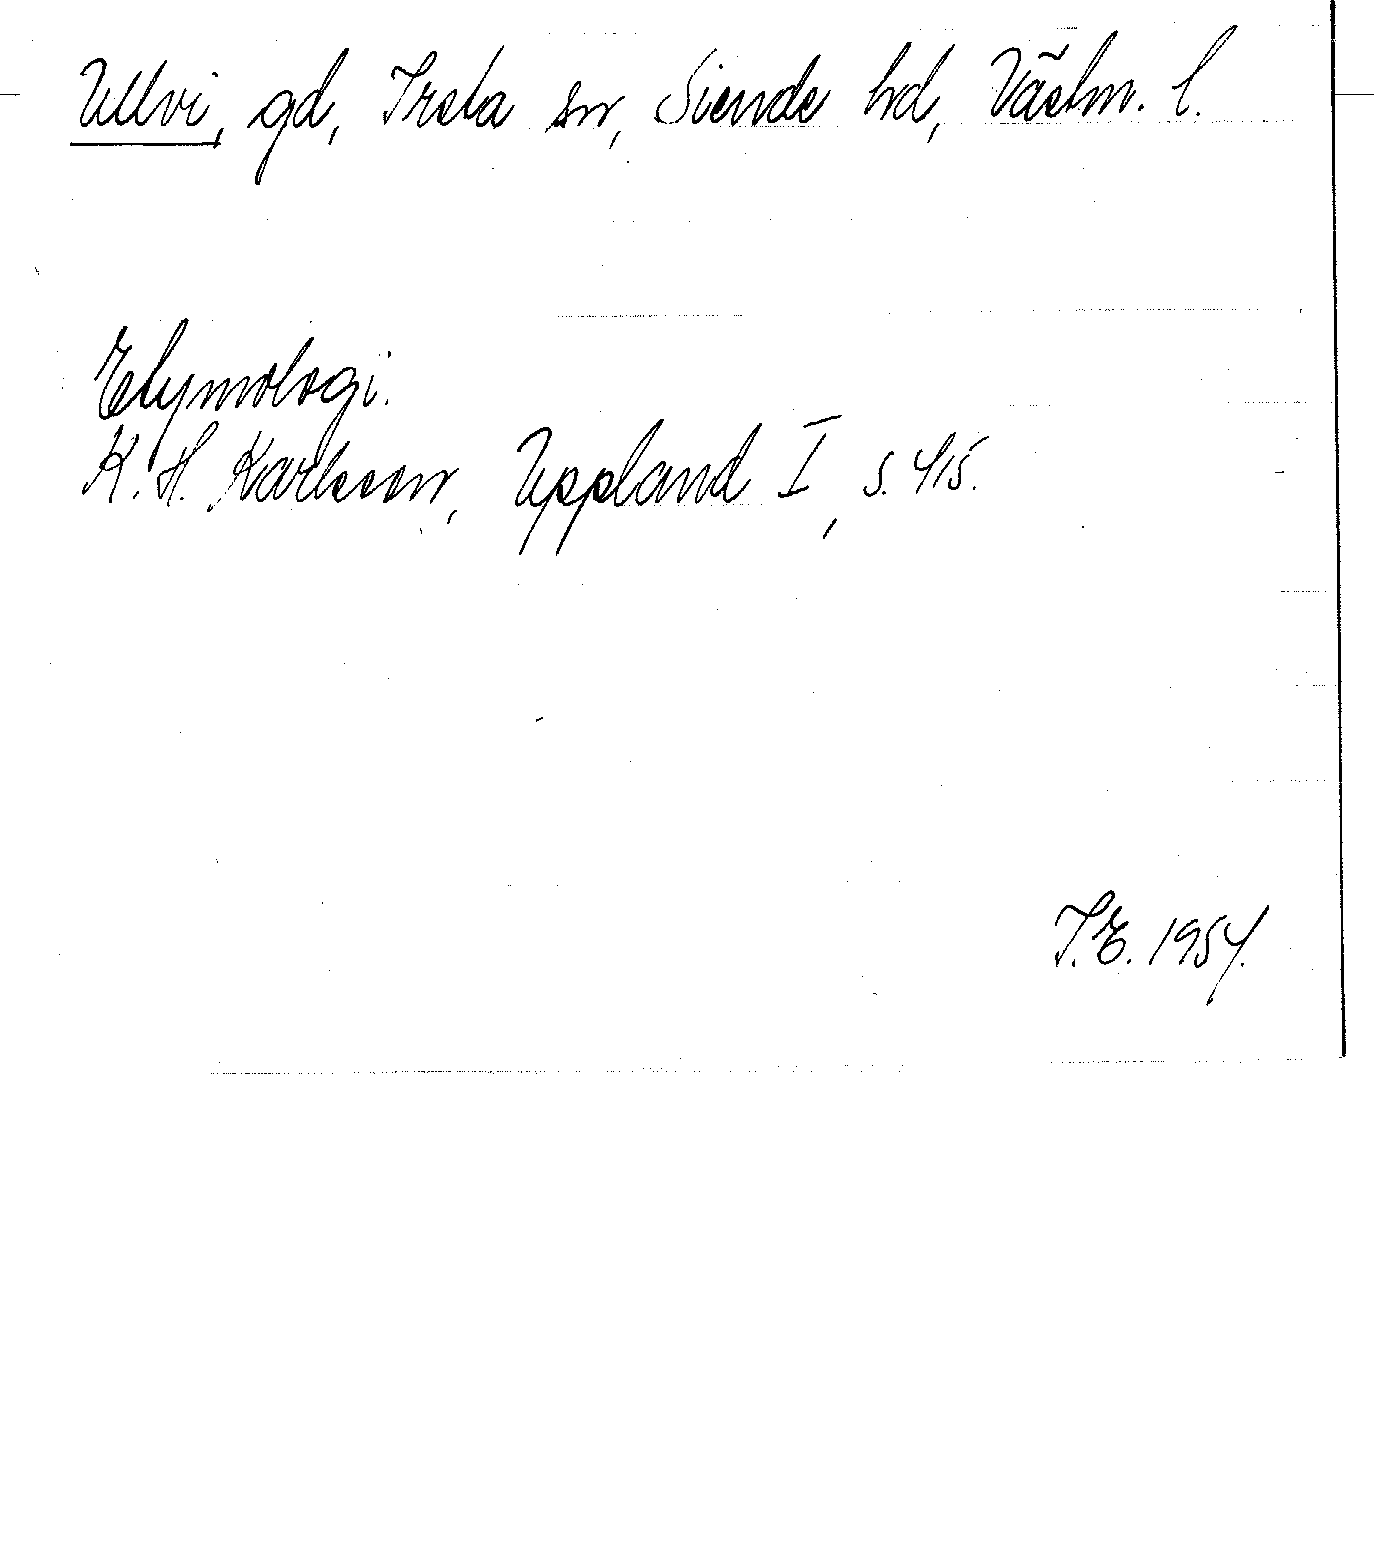 Ullvi, gd, Irsta sn, Siende hd, Västm. l.
Etymologi.
K. H. Karlsson, Uppland I, s. 415.
I.E. 1954.